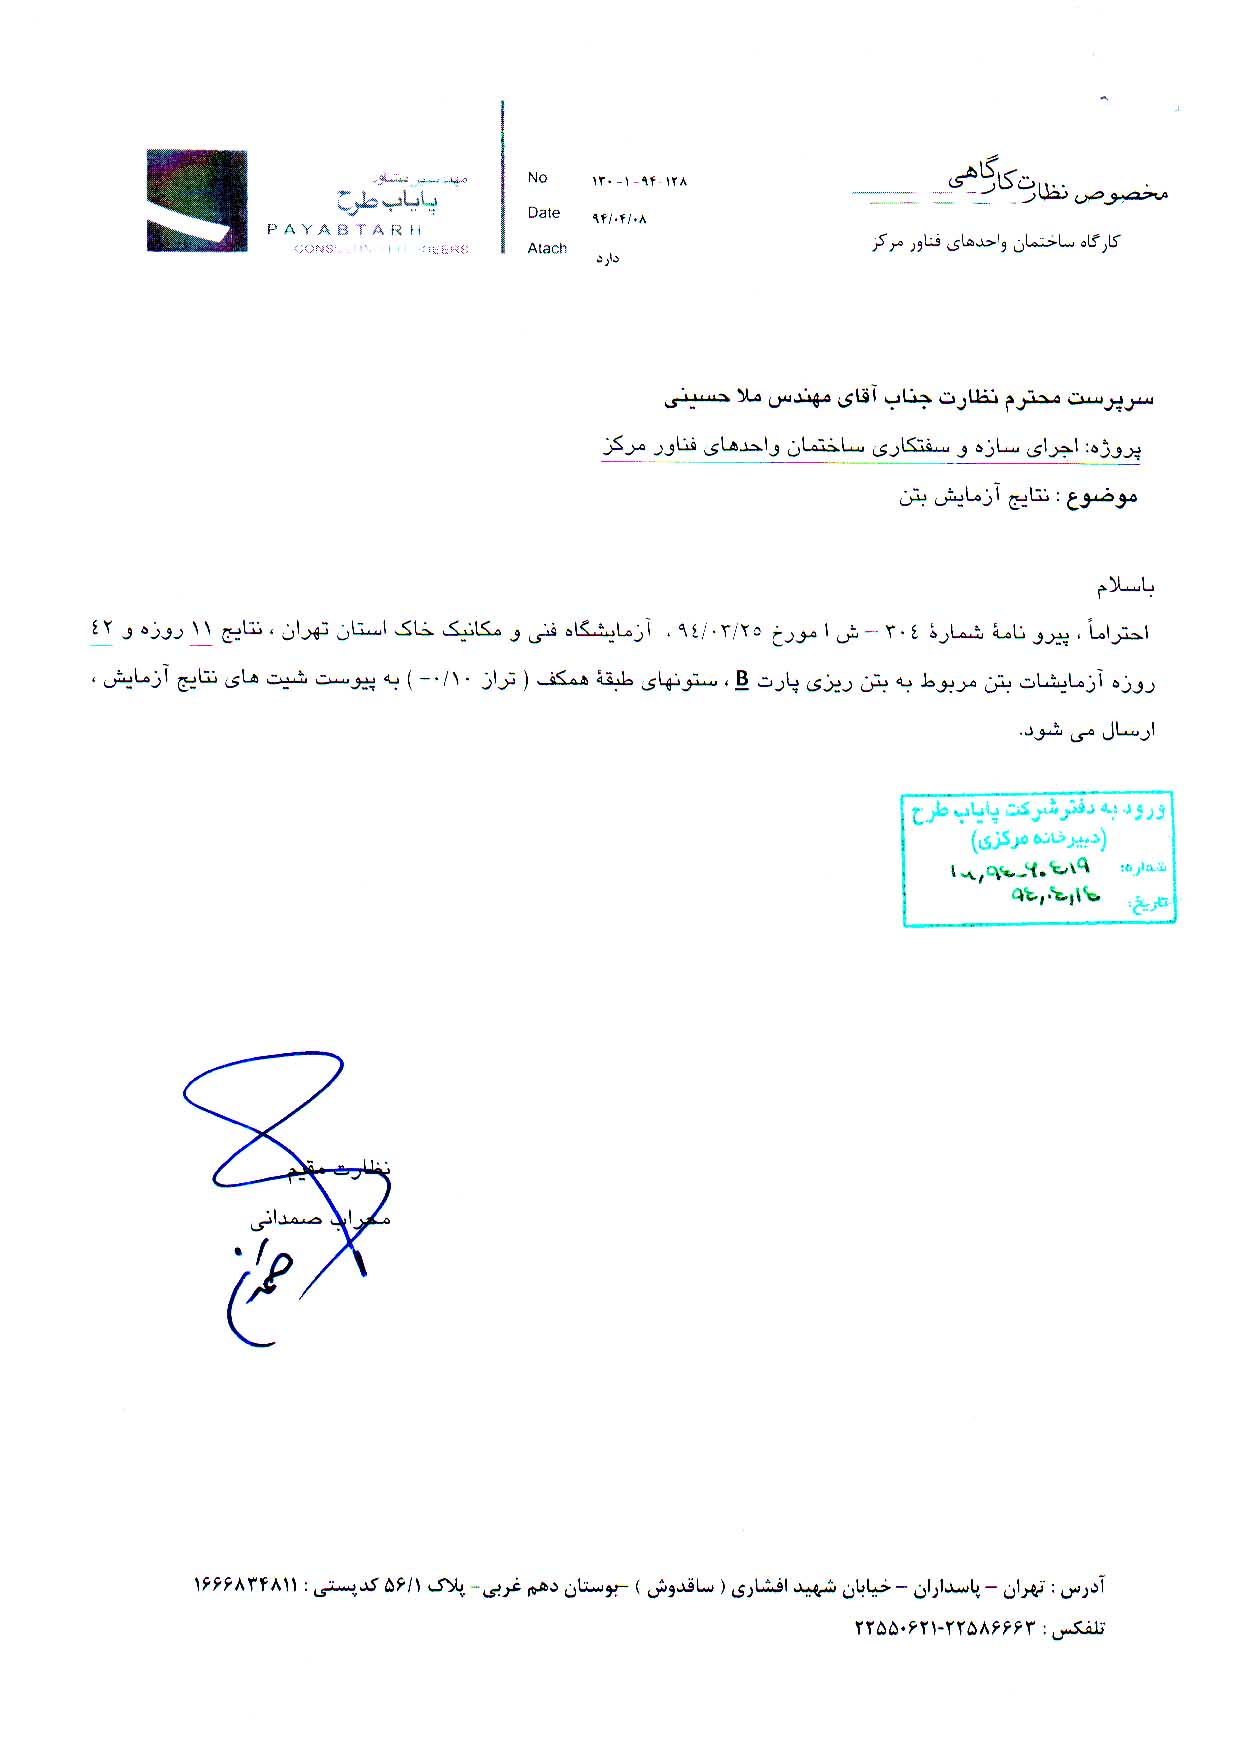 مخصوص نظارت کارگاهی
کارگاه ساختمان واحدهای فناور مرکز
No ۱۳۰-۱-۹۴-۱۲۸
Date ۹۴/۰۴/۰۸
Atach دارد
مهندسین مشاور
پایاب طرح
PAYABTARH
سرپرست محترم نظارت جناب آقای مهندس ملا حسینی
پروژه: اجرای سازه و سفتکاری ساختمان واحدهای فناور مرکز
موضوع : نتایج آزمایش بتن
باسلام
احتراماً ، پیرو نامۀ شمارۀ ٣٠٤ – ش ا مورخ ٩٤/٠٣/٢٥ ، آزمایشگاه فنی و مکانیک خاک استان تهران ، نتایج ١١ روزه و ٤٢
روزه آزمایشات بتن مربوط به بتن ریزی پارت B ، ستونهای طبقۀ همکف ( تراز ٠/١٠- ) به پیوست شیت های نتایج آزمایش ،
ارسال می شود.
ورود به دفتر شرکت پایاب طرح
(دبیرخانه مرکزی)
شماره:
تاریخ:
نظارت مقیم
محراب صمدانی
آدرس : تهران – پاسداران – خیابان شهید افشاری ( ساقدوش ) –بوستان دهم غربی- پلاک ۵۶/۱ کدپستی : ۱۶۶۶۸۳۴۸۱۱
تلفکس : ۲۲۵۵۰۶۲۱-۲۲۵۸۶۶۶۳